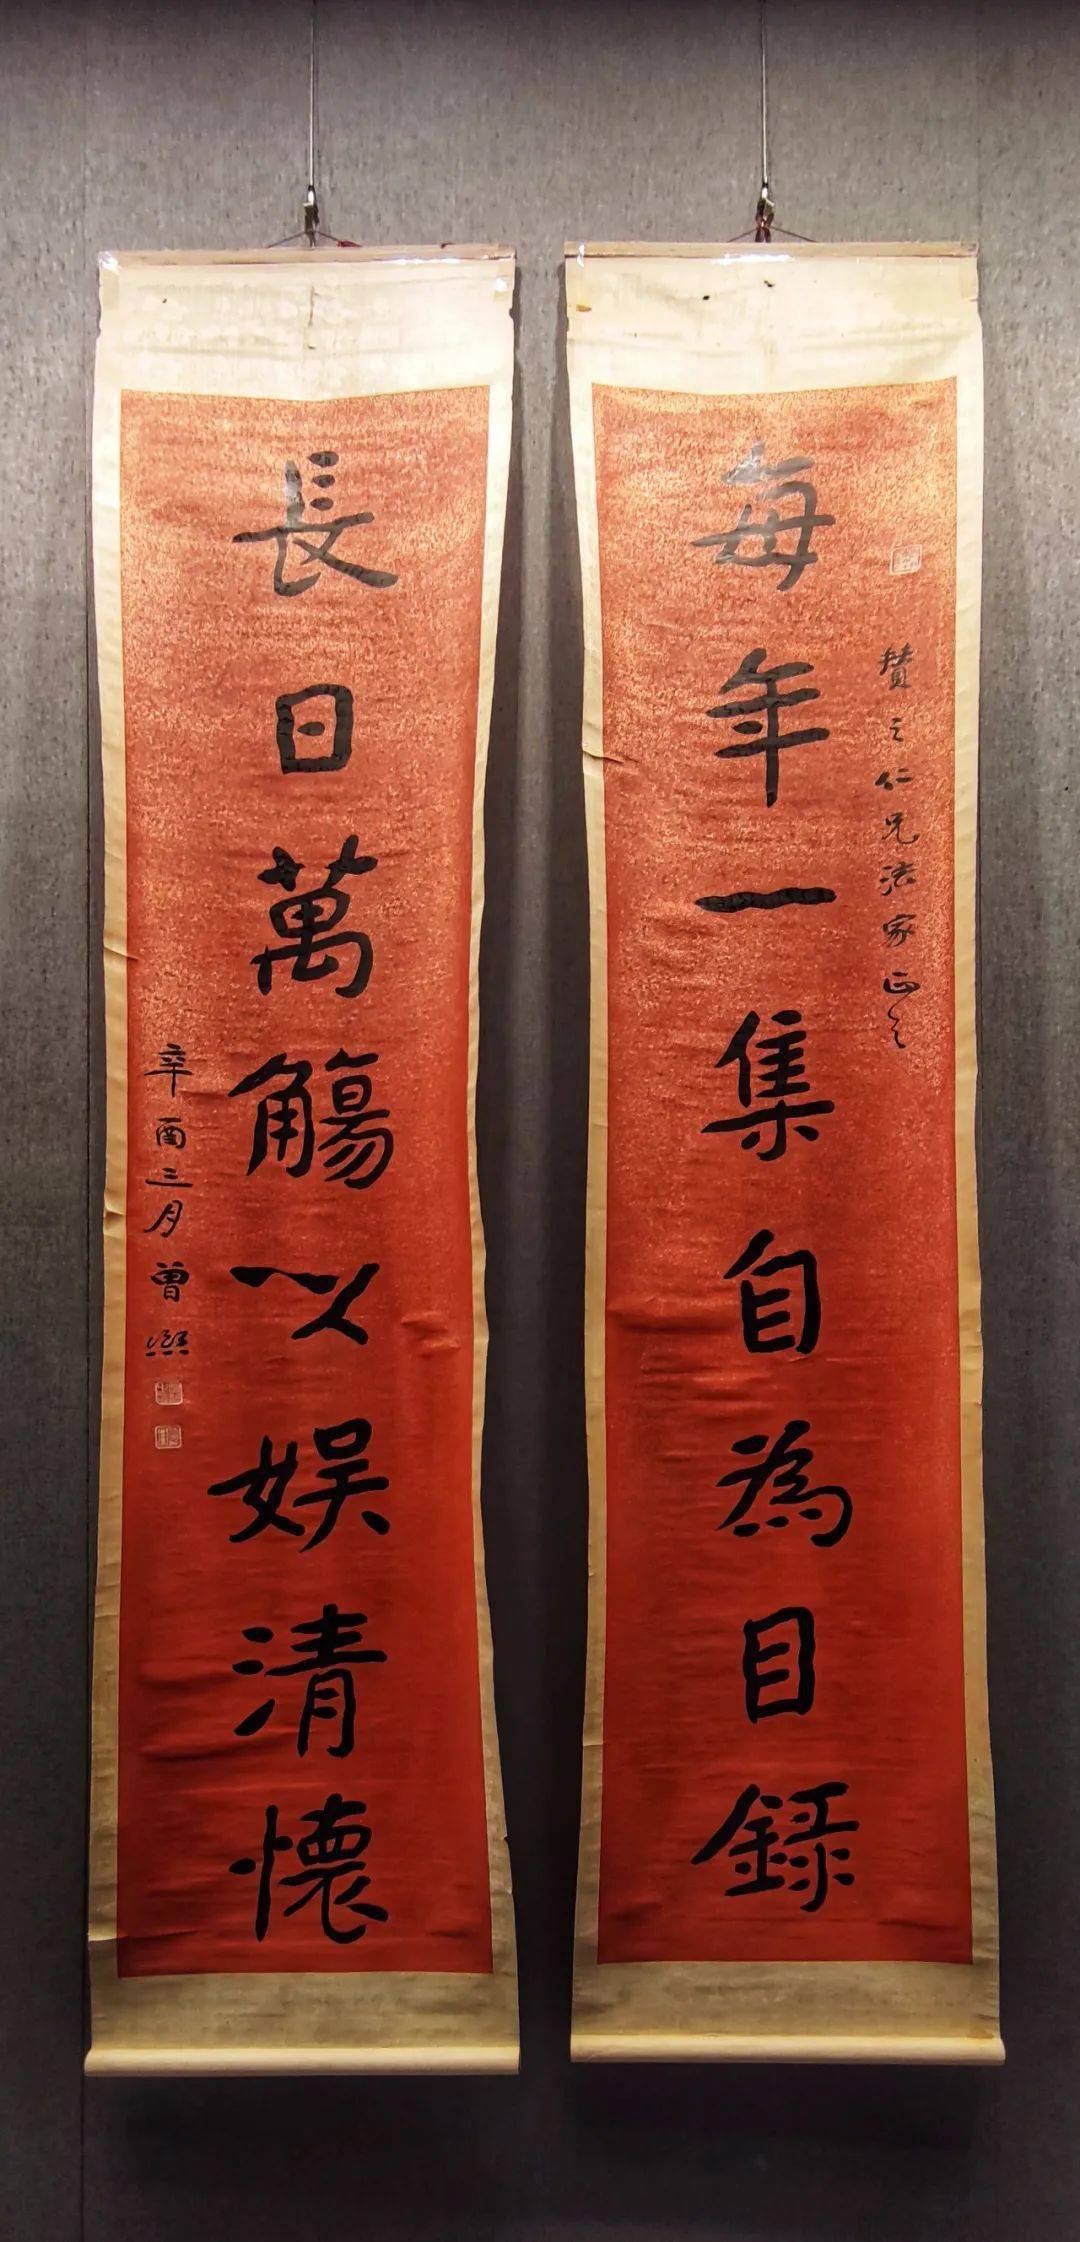 每年一集自為目錄
贊之仁兄法家正之
長日萬觴以娛清懷
辛酉三月曾熙